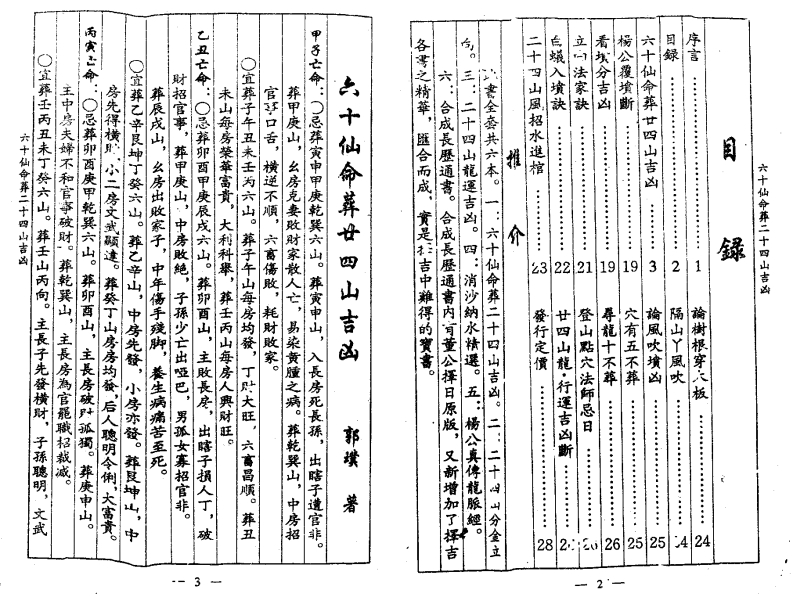 六十仙命葬二十四山吉凶
目錄
序言……………1
目錄……………2
六十仙命葬廿四山吉凶……3
楊公覆墳斷……………19
看墳分吉凶……………19
立向法家訣……………21
白蟻入墳訣……………22
二十四山風招水進棺……23
論樹根穿六板……………24
隔山丫風吹……………
論風吹墳凶……………25
穴有五不葬……………25
尋龍十不葬……………26
登山點穴法師忌日……
廿四山龍行運吉凶斷……
發行定價……………28
推介
書全套共六本。一:六十仙命葬二十四山吉凶。二:二十四山分金立
向。三:二十四山龍運吉凶。四:消沙納水精選。五:楊公真傳龍脈經。
六:合成長歷通書。合成長歷通書內有董公擇日原版,又新增加了擇吉
各書之精華,匯合而成,實是擇吉中難得的寶書。
— 2 —
六十仙命葬廿四山吉凶
郭璞 著
甲子亡命:○忌葬寅申甲庚乾巽六山。葬寅申山,入長房死長孫,出瞎子遭官非。
葬甲庚山,幺房克妻敗財家散人亡,易染黃腫之病。葬乾巽山,中房招
官非口舌,橫逆不順,六畜傷敗,耗財敗家。
○宜葬子午丑未壬丙六山。葬子午山每房均發,丁財大旺,六畜昌順。葬丑
未山每房榮華富貴,大利科舉,葬壬丙山每房人興財旺。
乙丑亡命:○忌葬卯酉甲庚辰戌六山。葬卯酉山,主敗長房,出瞎子損人丁,破
財招官事,葬甲庚山,中房敗絕,子孫少亡出啞巴,男孤女寡招官非。
葬辰戌山,幺房出敗家子,中年傷手殘腳,養生病痛苦至死。
○宜葬乙辛艮坤丁癸六山。葬乙辛山,中房先發,小房亦發。葬艮坤山,中
房先得橫財,小二房文武顯達。葬癸丁山房房均發,后人聰明令俐,大富貴。
丙寅亡命:○忌葬卯酉庚甲乾巽六山。葬卯酉山,主長房破財孤獨。葬庚申山。
主中房夫婦不和官事破財。葬乾巽山,主長房為官罷職招裁減。
○宜葬壬丙丑未丁癸六山。葬壬山丙向。主長子先發橫財,子孫聰明,文武
六十仙命葬二十四山吉凶
— 3 —